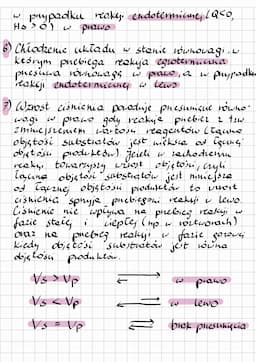 w przypadku reakcji endotermicznej (Q<0,
H>0) w prawo
6) Chłodzenie układu w stanie równowagi w
którym przebiega reakcja egzotermiczna
przesuwa równowagę w prawo, a w przypadku
reakcji endotermicznej w lewo
7) Wzrost ciśnienia powoduje przesunięcie równo-
wagi w prawo gdy reakcja przebiega z tzw
zmniejszeniem reagentów (łączna
objętość substratów jest większa od łącznej
objętości produktów). Jeżeli w zachodzeniu
reakcji towarzyszy wzrost objętości, czyli
łączna objętość substratów jest mniejsza
od łącznej objętości produktów to wzrost
ciśnienia sprzyja przebiegowi reakcji w lewo.
Ciśnienie nie wpływa na przebieg reakcji w
fazie stałej i ciekłej (np. w roztworach)
oraz na przebieg reakcji w fazie gazowej
kiedy objętość substratów jest równa
objętości produktów.
Vs > Vp ⇄ w prawo
Vs < Vp ⇄ w lewo
Vs = Vp ⇄ brak przesunięcia